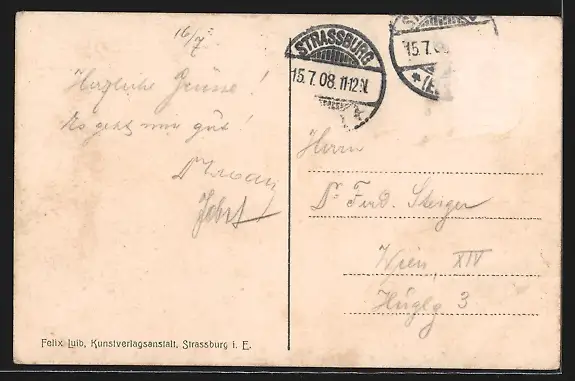 16/7
STRASSBURG
15.7.08.11-12.N.
15.7.08
Herzliche Grüsse!
Es geht mir gut!
Herrn
Dr Ferd. Steiger
Wien, XIV
Hüglg 3
Felix Luib, Kunstverlagsanstalt, Strassburg i. E.